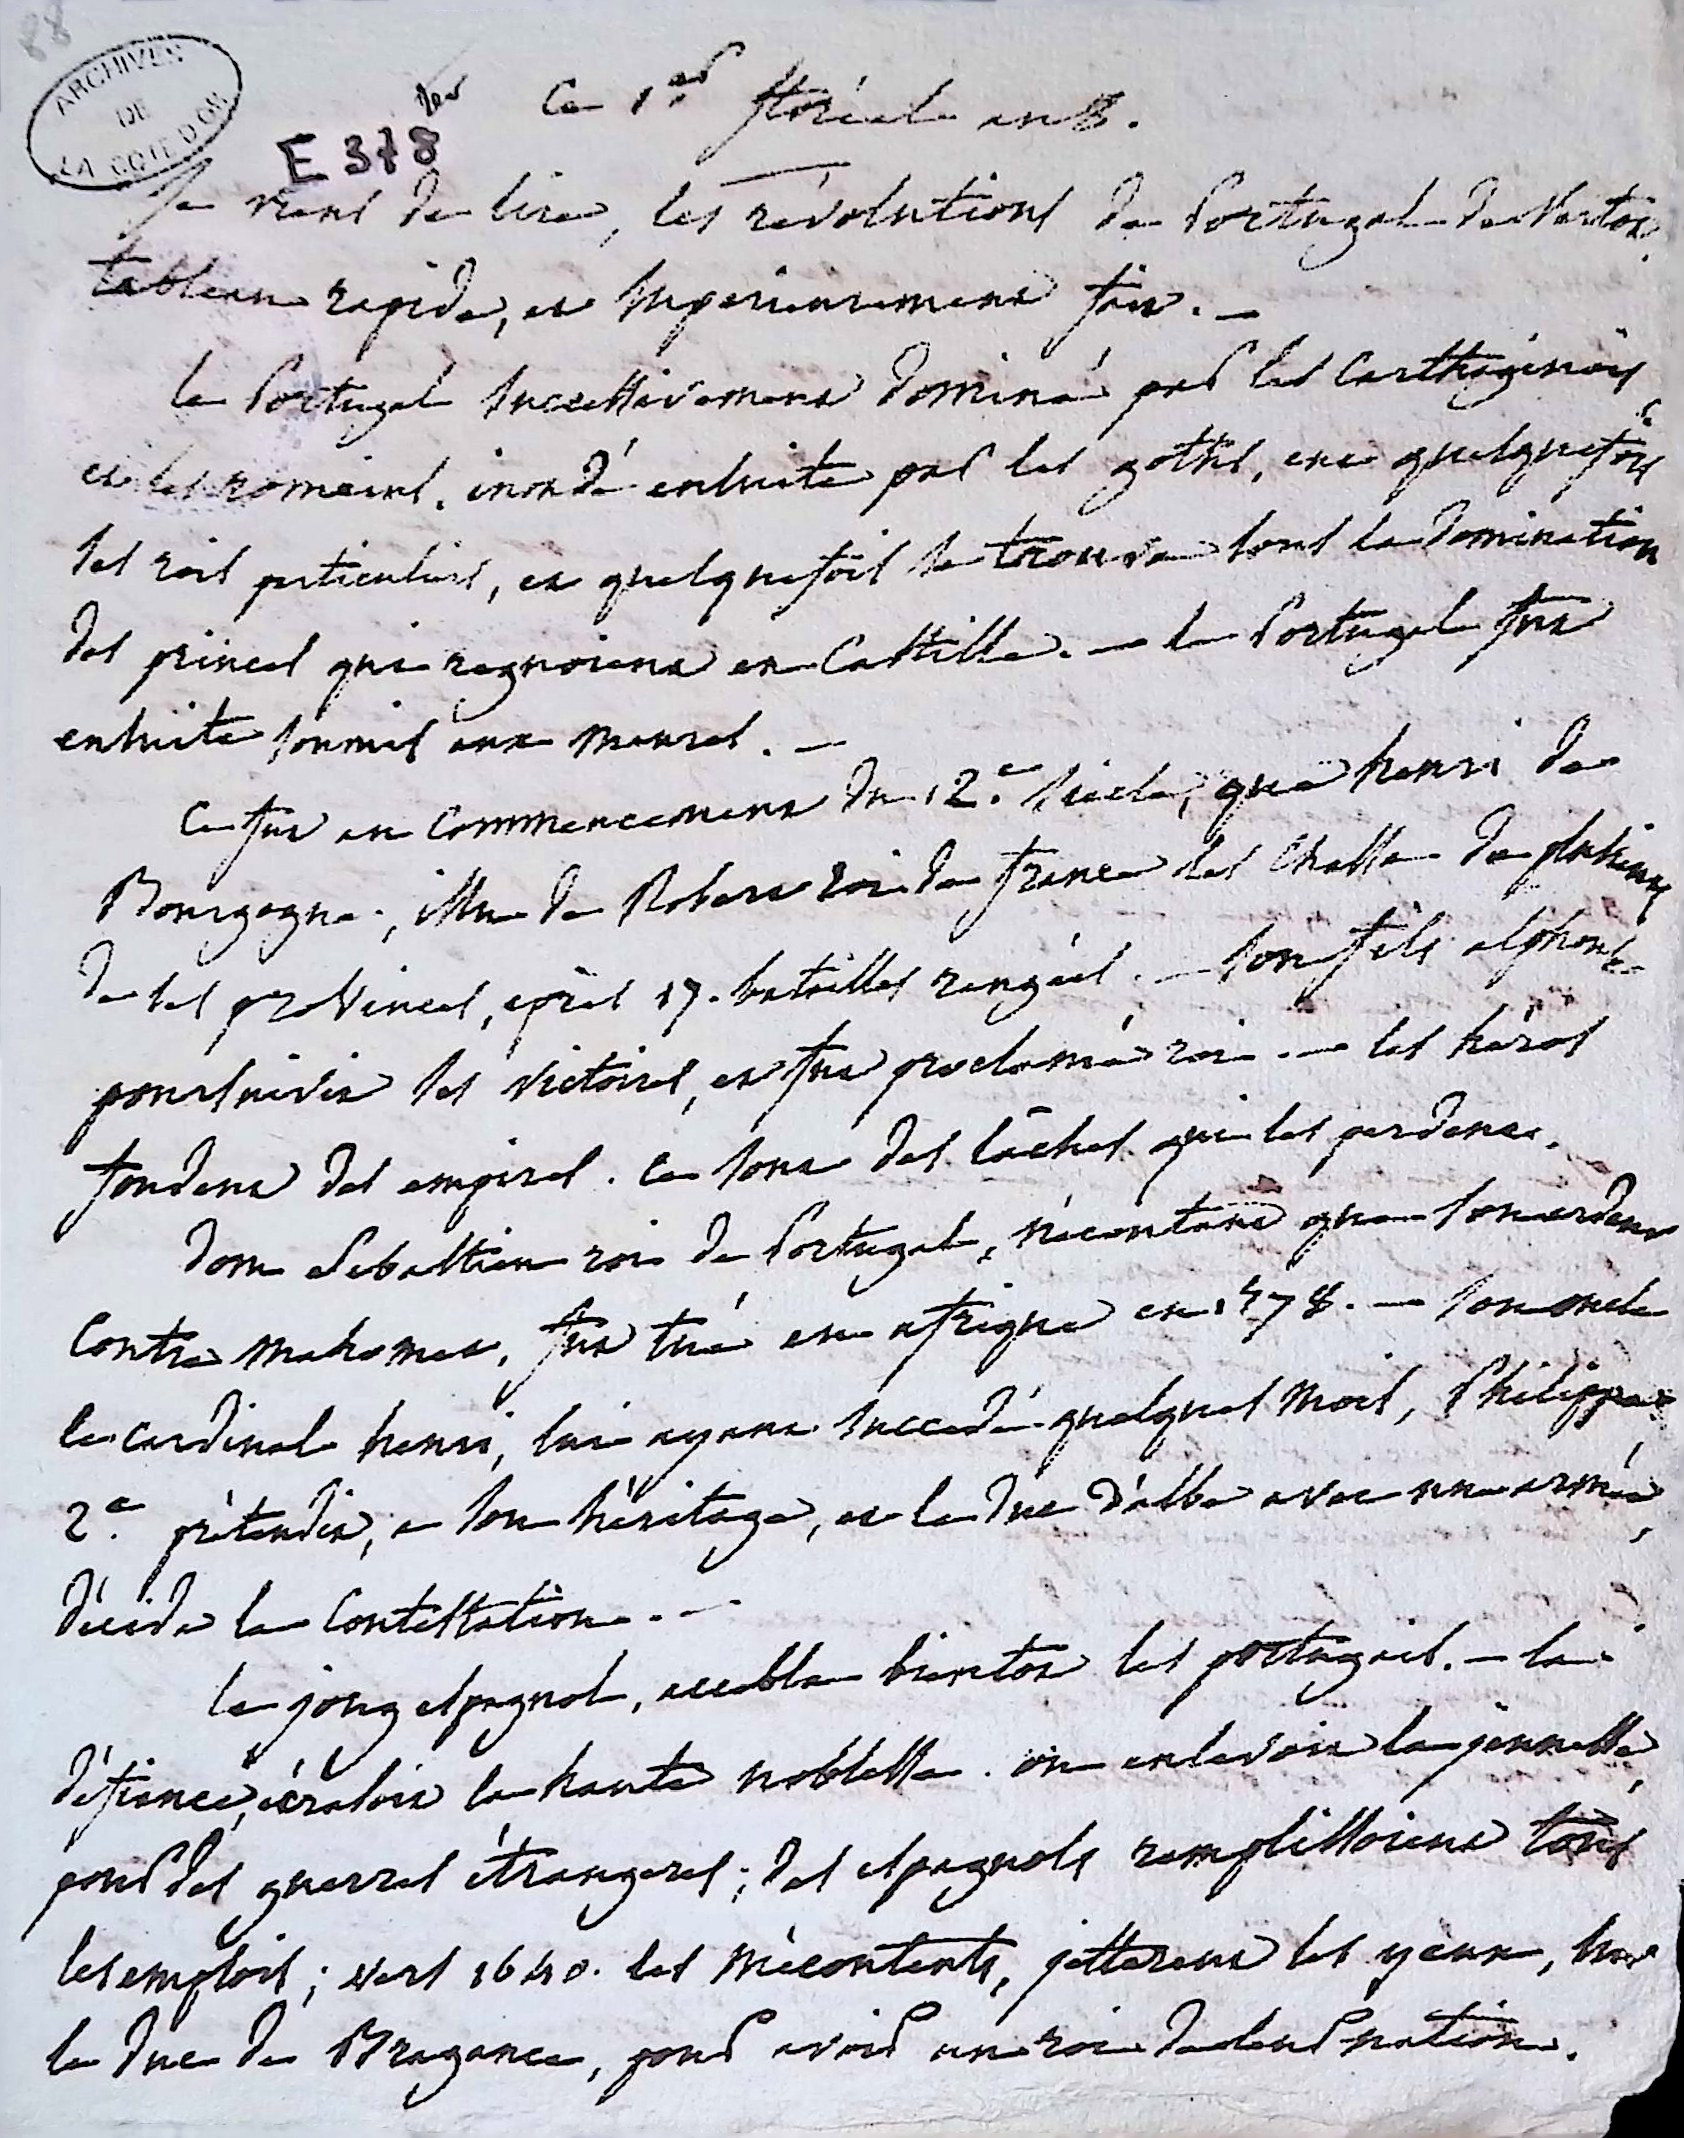 88
ARCHIVES
DE
LA COTE D'OR
E 378
Ce 1er floréal an 8.
Je viens de lire, les révolutions de Portugal de Vertot.
tableau rapide, et supérieurement fait. —
le Portugal successivement dominé par les Carthaginois
et les romains. inondé ensuite par les goths, eut quelquefois
ses rois particuliers, et quelquefois se trouva sous la domination
des princes qui regnoient en Castille. — le Portugal fut
ensuite soumis aux maures. —
Ce fut au commencement du 12.e siecle, que henri de
Bourgogne, issu de Robert roi de france les chassa de plusieurs
de ses provinces, après 17. batailles rangées. — son fils alphonse
poursuivit ses victoires, et fut proclamé roi. — les héros
fondent des empires. ce sont des lâches qui les perdent.
dom Sebastien roi de Portugal, n'écoutant que son ardeur
contre mahomet, fut tué en afrique en 1578. — son oncle
le cardinal henri, lui ayant succedé quelques mois, Philippe
2.e prétendit, a son héritage, et le duc d'albe avec une armée,
décida la contestation. —
le joug espagnol, accabla bientot les portugais. — la
défiance, éxaloit la haute noblesse. on enlevoit la jeunesse,
pour des guerres étrangeres; des espagnols remplissoient tous
les emplois; vers 1640. les mécontents, jetterent les yeux, sur
le duc de Bragance, pour avoir un roi de leur nation.